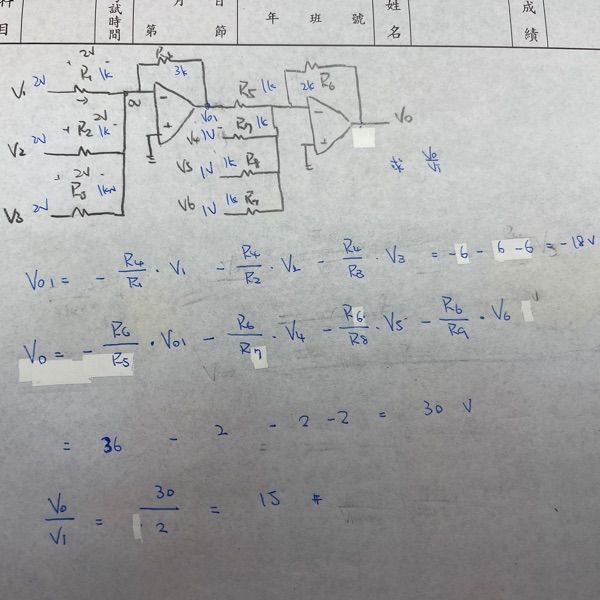 科目 考試時間 月 日 第 節 年 班 號 姓名 成績
R4 3k
V1 2V + 2V - R1 1k
V2 2V + 2V - R2 1k
V3 2V + 2V - R3 1k
0V - +
V01 R5 1k 2k R6
V4 1V R7 1k
V5 1V 1k R8
V6 1V 1k
- + V0
求 V0/V1
V01 = - R4/R1 · V1 - R4/R2 · V2 - R4/R3 · V3 = -6 - 6 - 6 = -18V
V0 = - R6/R5 · V01 - R6/R7 · V4 - R6/R8 · V5 - R6/R9 · V6
= 36 - 2 - 2 - 2 = 30 V
V0/V1 = 30/2 = 15 #